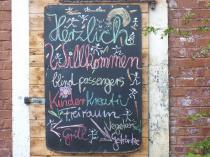 Herzlich
Willkommen
blind passengers
Kinder Kreativ
Freiraum
Grill
Getränke